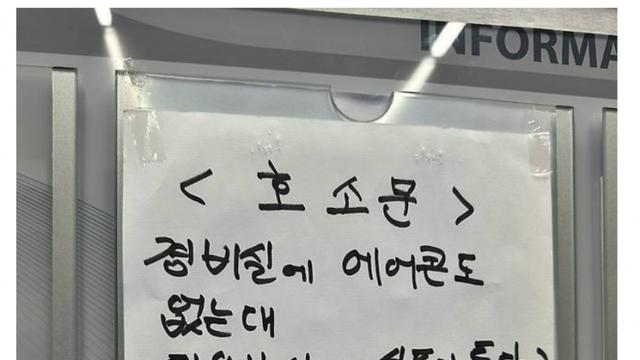 INFORMA
< 호소문 >
경비실에 에어콘도
없는대